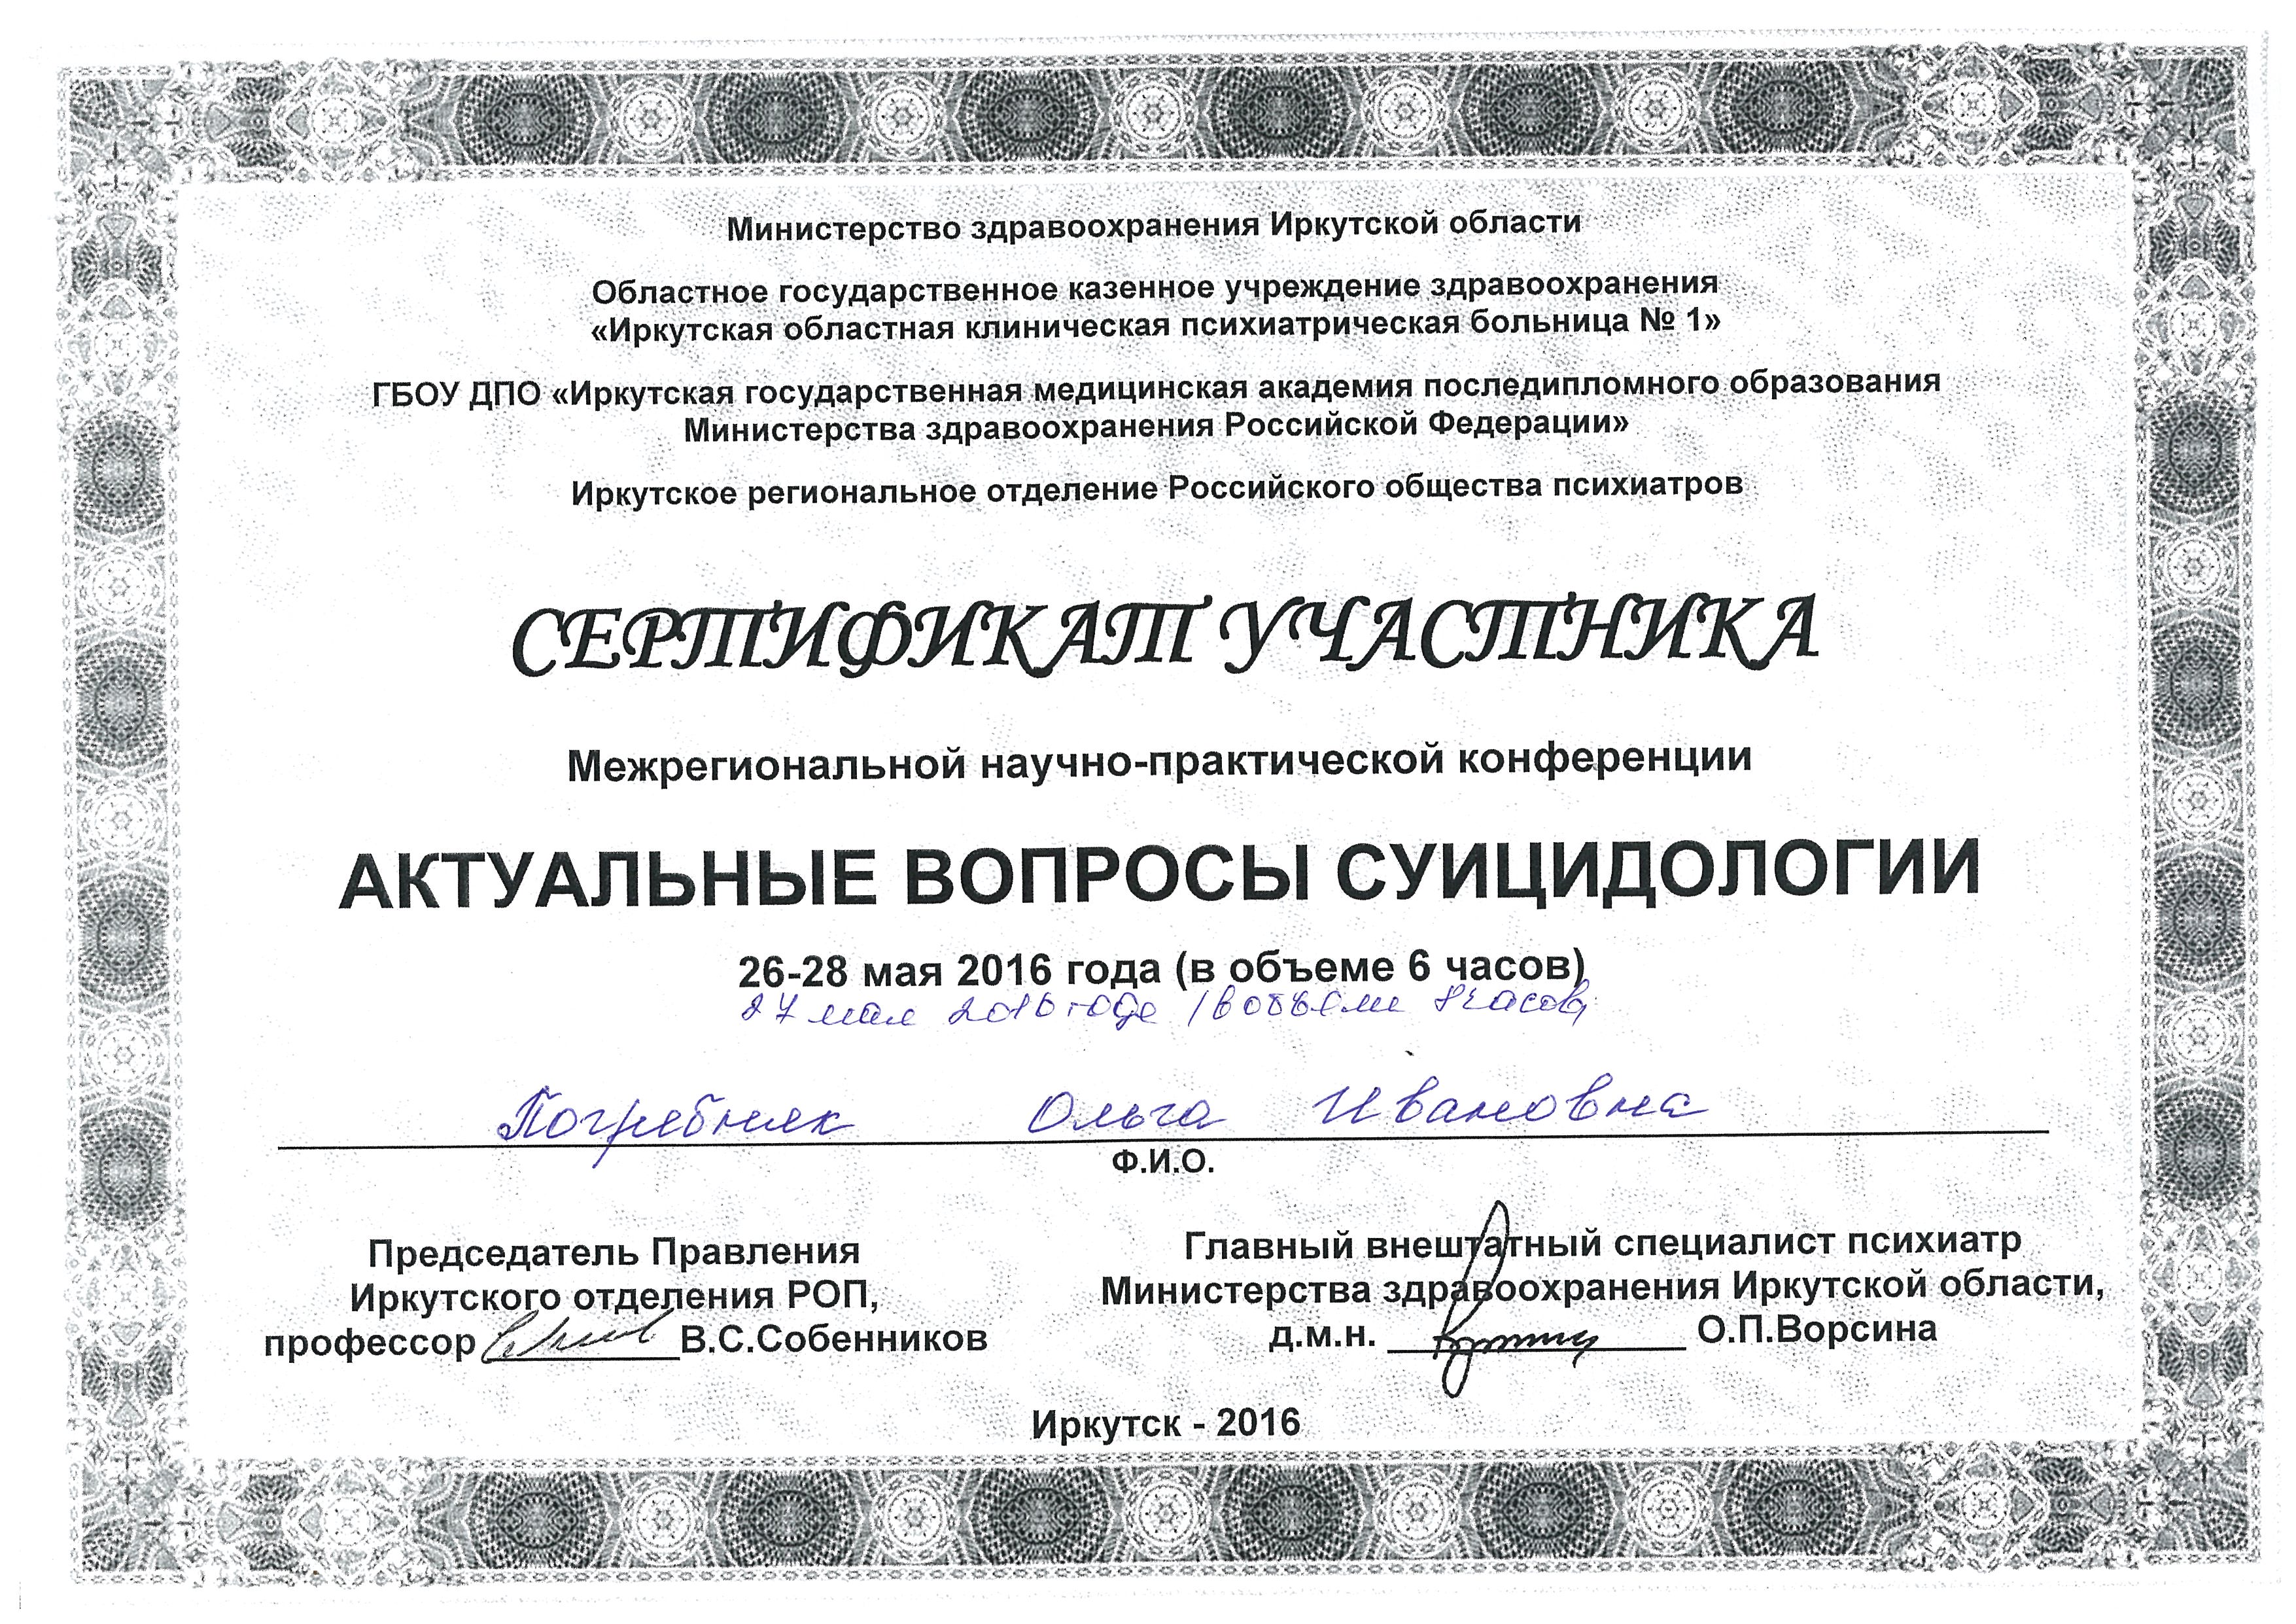 Министерство здравоохранения Иркутской области
Областное государственное казенное учреждение здравоохранения
«Иркутская областная клиническая психиатрическая больница № 1»
ГБОУ ДПО «Иркутская государственная медицинская академия последипломного образования
Министерства здравоохранения Российской Федерации»
Иркутское региональное отделение Российского общества психиатров
СЕРТИФИКАТ УЧАСТНИКА
Межрегиональной научно-практической конференции
АКТУАЛЬНЫЕ ВОПРОСЫ СУИЦИДОЛОГИИ
26-28 мая 2016 года (в объеме 6 часов)
27 мая 2016 года /в объеме часов
Погребняк Ольга Ивановна
Ф.И.О.
Председатель Правления
Иркутского отделения РОП,
профессор В.С.Собенников
Главный внештатный специалист психиатр
Министерства здравоохранения Иркутской области,
д.м.н. О.П.Ворсина
Иркутск - 2016